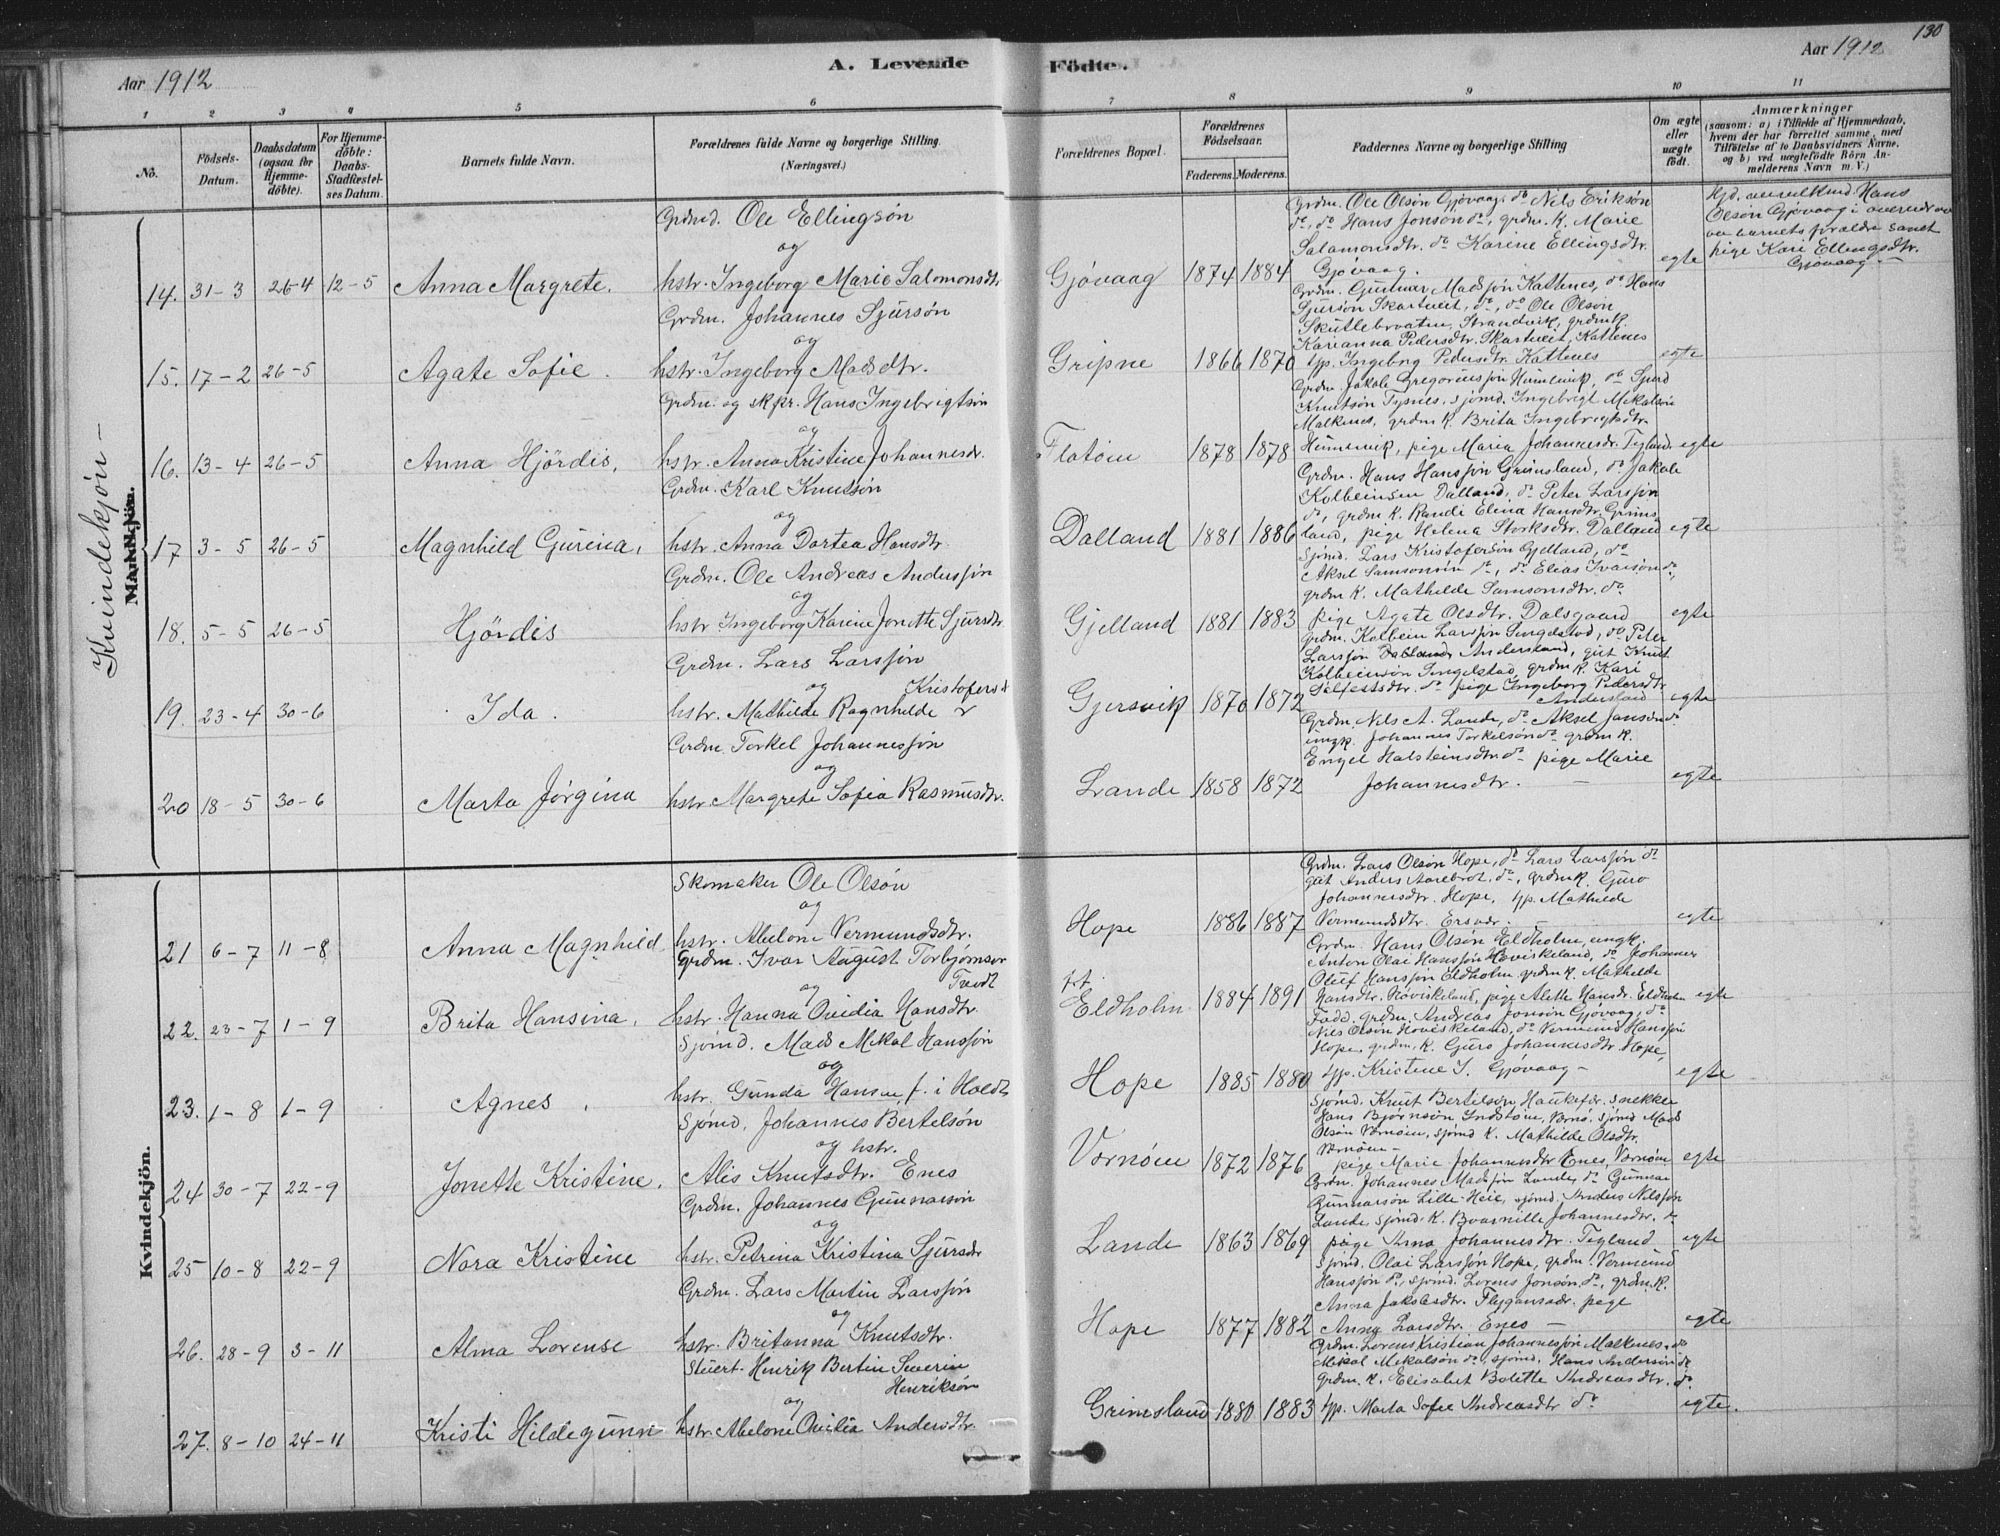 130
Aar 1912
A. Levende Födte.
Aar 1912
1 2 3 4 5 6 7 8 9 10 11
No.
Födsels-
Datum.
Daabsdatum
(ogsaa for
Hjemme-
döbte).
For Hjemme-
döbte:
Daabs-
Stadfæstel-
ses Datum.
Barnets fulde Navn.
Forældrenes fulde Navne og borgerlige Stilling
(Næringsvei.)
Forældrenes Bopæl.
Forældrenes
Födselsaar.
Faderens. Moderens.
Faddernes Navne og borgerlige Stilling
Om ægte
eller
uægte
födt.
Anmærkninger
(saasom: a) i Tilfælde af Hjemmedaab,
hvem der har forrettet samme, med
Tilföielse af to Daabsvidners Navne,
og b) ved uægtefödte Börn An-
melderens Navn m. V.)
Kvindekjøn –
Mandkjön.
14. 31-3 26-4 12-5 Anna Margrete.
Grdmd. Ole Ellingsøn
og
hstr. Ingeborg Marie Salomonsdtr
Gjøvaag 1874 1884
Grdm. Ole Olsøn Gjøvaag, do Nils Eriksøn
do, do Hans Jonsøn do, grdm. K. Marie
Salamonsdtr. do Karine Ellingsdtr.
Gjøvaag.
egte
Olsøn Gjøvaag i
pige Kari Ellingsdtr.
Gjøvaag. –
15. 17-2 26-5 Agate Sofie.
Grdm. Johannes Sjursøn
og
hstr. Ingeborg Madsdtr.
Gripne 1866 1870
Grdm. Gunnar Madsjøn Kattenes, do Hans
Sjursøn Skartveit, do, do Ole Olsøn
Skutlebraaten, Strandvik, grdm K.
Karianna Pedersdtr. Skartveit, Kattenes
tjp. Ingeborg Pedersdtr. Kattenes
egte
16. 13-4 26-5 Anna Hjördis,
Grdm. og skpr. Hans Ingebrigtsøn
og
hstr. Anna Kristine Johannesdr.
Flatøin 1878 1878
Grdm. Jakob Gregoriussjøn Humlevik, do Sjurd
Knutsøn Tysnes, sjømd. Ingebrigt Mikalsøn
Malkenes, grdm K. Brita Ingebrigtsdtr.
Humlevik, pige Maria Johannesdr. Tegland
egte
17 3-5 26-5 Magnhild Gurina,
Grdm. Karl Knutsøn
og
hstr. Anna Dortea Hansdtr.
Dalland 1881 1886
Grdm. Hans Hansjøn Grimsland, do Jakob
Kolbeinsen Dalland, do Peter Larsjøn
do, grdm K. Randi Elina Hansdtr. Grims-
land, pige Helena Storksdtr. Dalland
egte
18. 5-5 26-5 Hjördis
Grdm. Ole Andreas Andersjøn
og
hstr Ingeborg Karine Jonette Sjursdtr.
Gjelland 1881 1883
Sjømd. Lars Kristofersøn Gjelland, do
Aksel Samsonsøn do, do Elias Ivarsøn do,
grdm K. Mathilde Samsonsdtr. do
pige Agate Olsdtr. Dalsgaard
egte
19. 23-4 30-6 Ida.
Grdm. Lars Larsjøn
og Kristofersd
hstr. Mathilde Ragnhilde r
Gjersvik 1870 1872
Grdm. Kolbein Larsjøn Singelstad, do Peter
Larsjøn Andersland, gut Knut
Kolbeinsøn Singelstad, grdm K. Kari
Selfestsdtr. do pige Ingeborg Pedersdtr
Andersland
egte
20 18-5 30-6 Marta Jørgina
Grdm. Torkel Johannesjøn
og
hstr. Margrete Sofia Rasmusdtr.
Lande 1858 1872
Grdm. Nils A. Lande, do Aksel Jansøn do
ungk. Johannes Torkelsøn do grdm K.
Engel Halsteinsdtr do pige Marie
Johannesdtr. –
egte
Kvindekjön.
21 6-7 11-8 Anna Magnhild
Skomaker Ole Olsøn
og
hstr. Abelone Vermundsdtr.
Hope 1886 1887
Grdm. Lars Olsøn Hope, do Lars Larsjøn do
gut Anders Aarebrot, do, grdm K. Guro
Johannesdtr. Hope, tjp. Mathilde
Vermundsdtr.
egte
22. 23-7 1-9 Brita Hansina,
Grdm. Ivar August Torbjørnsen
Tvedt
og
hstr. Hanna Ovidia Hansdtr.
Eldholm 1884 1891
Grdm. Hans Olsøn Eldholm, ungk.
Anton Olai Hansjøn Høviskeland, do Johannes
Oluf Hansjøn Eldholm grdm K. Mathilde
Hansdtr. Høviskeland, pige Alette Hansdr. Eldholm
egte
23. 1-8 1-9 Agnes,
Sjømd. Mads Mikal Hansjøn
og
hstr. Gunda Hansen f. i Holdt
Hope 1885 1880
Fadd. grdm. Andreas Jonsøn Gjøvaag, do
Nils Olsøn Høviskeland, do Vermund Hansjøn
Hope, grdm. K. Guro Johannesdtr. Hope,
tjp. Kristine I. Gjøvaag –
egte
24 30-7 22-9 Jonette Kristine.
Sjømd. Johannes Bertelsøn
og hstr.
Alis Knutsdtr. Enes
Vernøin 1872 1876
Sjømd. Knut Bertelsøn Haukefær, snekker
Hans Bjørnsøn Indstøin, Vernø, sjømd Mads
Olsøn Vernøin, sjømd K. Mathilde Olsdtr.
Vernøin –
pige Marie Johannesdtr Enes, Vernøin
egte
25 10-8 22-9 Nora Kristine
Grdm. Johannes Gunnarsøn
og
hstr. Petrina Kristina Sjursdtr
Lande 1863 1869
Grdm. Johannes Madsjøn Lande, do Gunnar
Gunnarsøn Lille-Heie, sjømd. Anders Nilsjøn
Lande, sjømd. K. Bvarnille Johannesdtr. do
pige Anna Johannesdtr. Tegland
egte
26. 28-9 3-11 Alma Lorense
Grdm. Lars Martin Larsjøn
og
hstr. Britanna Knutsdtr.
Hope 1877 1882
Sjømd. Olai Larsjøn Hope, grdm. Vermund
Hansjøn do, sjømd. Lorens Jonsøn do, grdm. K.
Anna Jakobsdtr. Flygansvær. pige
Anna Larsdtr. Enes –
egte
27. 8-10 24-11 Kristi Hildegunn
Stuert. Henrik Bertin Severin
Henriksøn
og
hstr. Abelone Ovidia Andersdtr.
Grimsland 1880 1883
Grdm. Lorens Kristian Johannesjøn Malkenes, do
Mikal Mikalsøn do, sjømd. Hans Andersøn do
grdm. K. Elisabet Bolette Andreasdtr. do
tjp. Marta Sofie Andreasdtr do
egte.